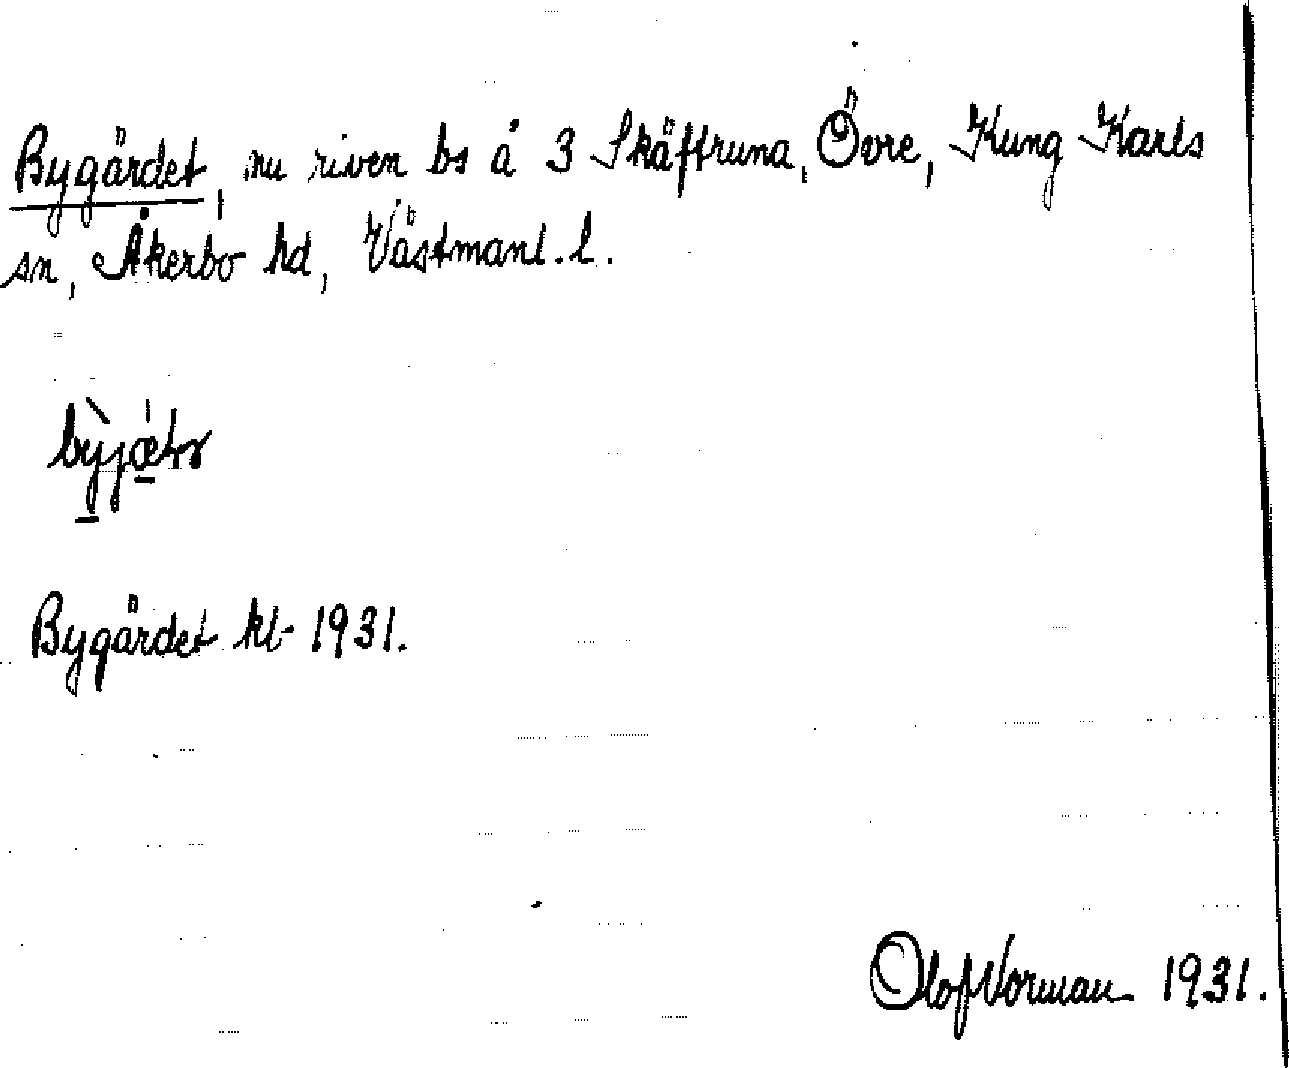 Bygärdet, nu riven bs å 3 Skäftruna, Övre, Kung Karls
sn, Åkerbo hd, Västmanl. l.
Bygärdet kl- 1931.
Olof Vorman 1931.